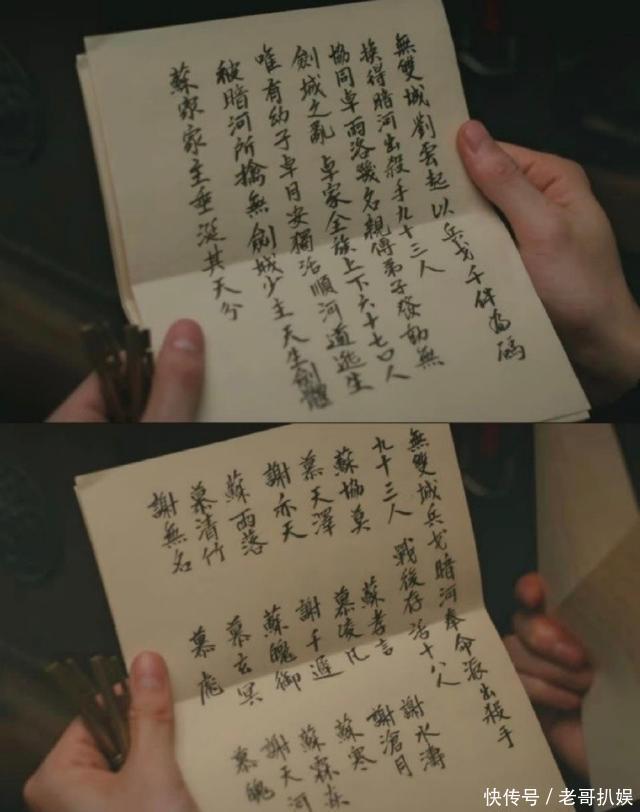 無雙城劉雲起以兵戈千件為碼
換得暗河出殺手九十三人
協同卓雨洛幾名親傳弟子發動無
劍城之亂 卓家全族上下六十七口人
唯有幼子卓月安獨活順河道逃生
被暗河所擒無劍城少主天生劍體
蘇家家主垂涎其天分
無雙城兵戈暗河奉命派出殺手
九十三人 戰後存活十八人
蘇協莫 蘇孝言 謝水濤
慕天澤 慕凌凡 謝滄月
謝亦天 謝千 蘇寒
蘇雨落 蘇魄御 蘇森森
慕清竹 慕玄冥 謝天河
謝無名 慕彪 慕魄
快传号/老哥扒娱